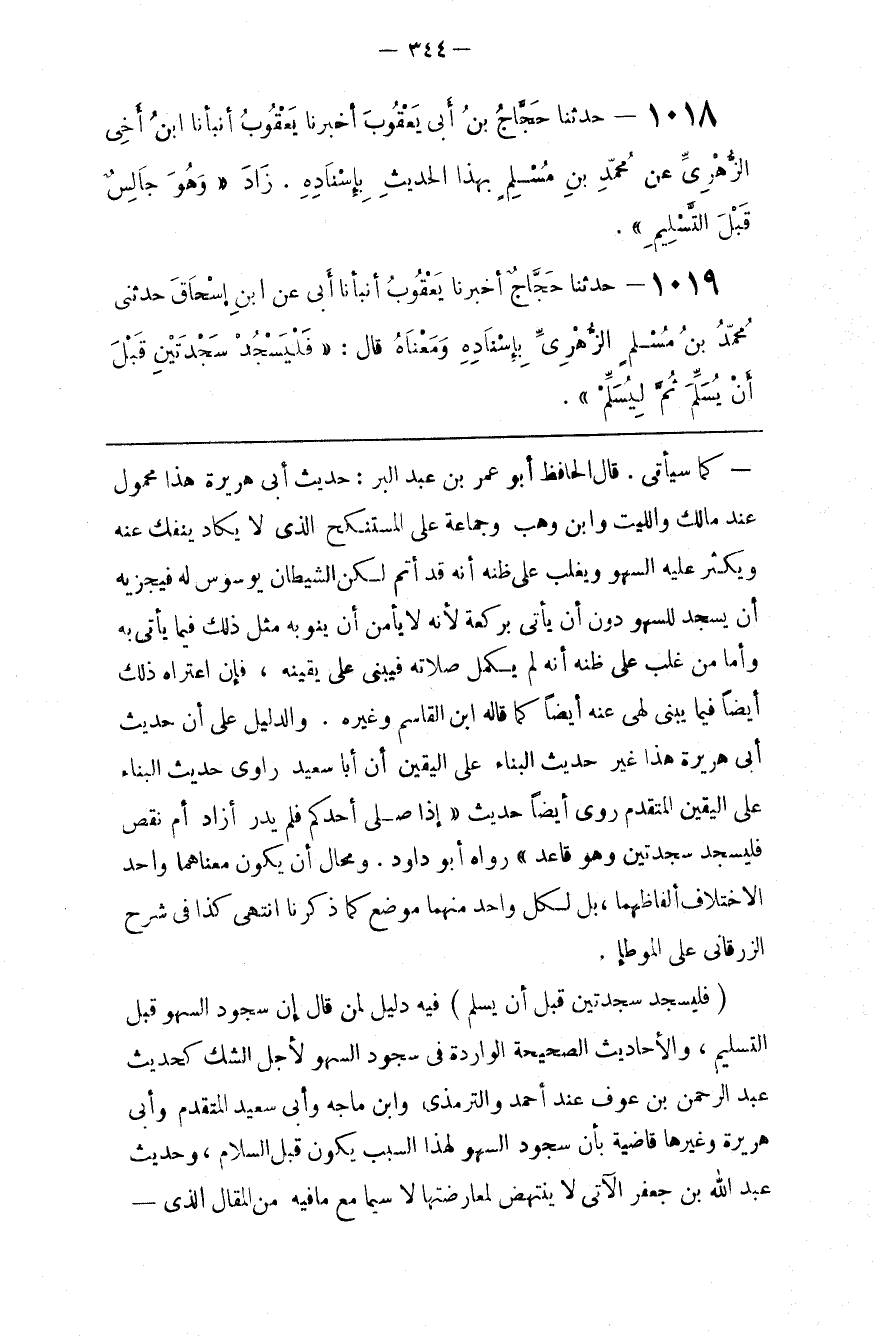 — ٣٤٤ —
١٠١٨ — حدثنا حَجَّاجُ بنُ أَبى يَعْقُوبَ أخبرنا يَعْقُوبُ أنبأنا ابنُ أَخِى
الزُّهْرِىِّ عن مُحمّدِ بنِ مُسْـلِمٍ بهذا الحديثِ بِإِسْنَادِهِ . زَادَ « وَهُوَ جَالِسٌ
قَبْلَ التَّسْلِيمِ » .
١٠١٩ — حدثنا حَجَّاجٌ أخبرنا يَعْقُوبُ أنبأنا أَبى عن ابنِ إسْحَاقَ حدثنى
مُحمّدُ بنُ مُسْـلمٍ الزُّهْرِىِّ بِإِسْنَادِهِ وَمَعْنَاهُ قال : « فَلْيَسْجُدْ سَجْدَتَيْنِ قَبْلَ
أَنْ يُسَلِّمَ ثُمَّ لِيُسَلِّمْ » .
— كما سيأتى . قال الحافظ أبو عمر بن عبد البر : حديث أبى هريرة هذا محمول
عند مالك والليث وابن وهب وجماعة على المستنـكح الذى لا يكاد ينفك عنه
ويكـثر عليه السهو ويغلب على ظنه أنه قد أتم لـكن الشيطان يوسوس له فيجزيه
أن يسجد للسهو دون أن يأتى بركعة لأنه لا يأمن أن ينوبه مثل ذلك فيما يأتى به
وأما من غلب على ظنه أنه لم يـكمل صلاته فيبنى على يقينه ، فإن اعتراه ذلك
أيضاً فيما يبنى لهى عنه أيضاً كما قاله ابن القاسم وغيره . والدليل على أن حديث
أبى هريرة هذا غير حديث البناء على اليقين أن أبا سعيد راوى حديث البناء
على اليقين المتقدم روى أيضاً حديث « إذا صـلى أحدكم فلم يدر أزاد أم نقص
فليسجد سجدتين وهو قاعد » رواه أبو داود . ومحال أن يكون معناهما واحد
الاختلاف ألفاظهما ، بل لـكل واحد منهما موضع كما ذكرنا انتهى كذا فى شرح
الزرقانى على الموطإ .
( فليسجد سجدتين قبل أن يسلم ) فيه دليل لمن قال إن سجود السهو قبل
التسليم ، والأحاديث الصحيحة الواردة فى سجود السهو لأجل الشك كحديث
عبد الرحمن بن عوف عند أحمد والترمذى وابن ماجه وأبى سعيد المتقدم وأبى
هريرة وغيرها قاضية بأن سجود السهو لهذا السبب يكون قبل السلام ، وحديث
عبد الله بن جعفر الآتى لا ينتهض لمعارضتها لا سيما مع مافيه من المقال الذى —